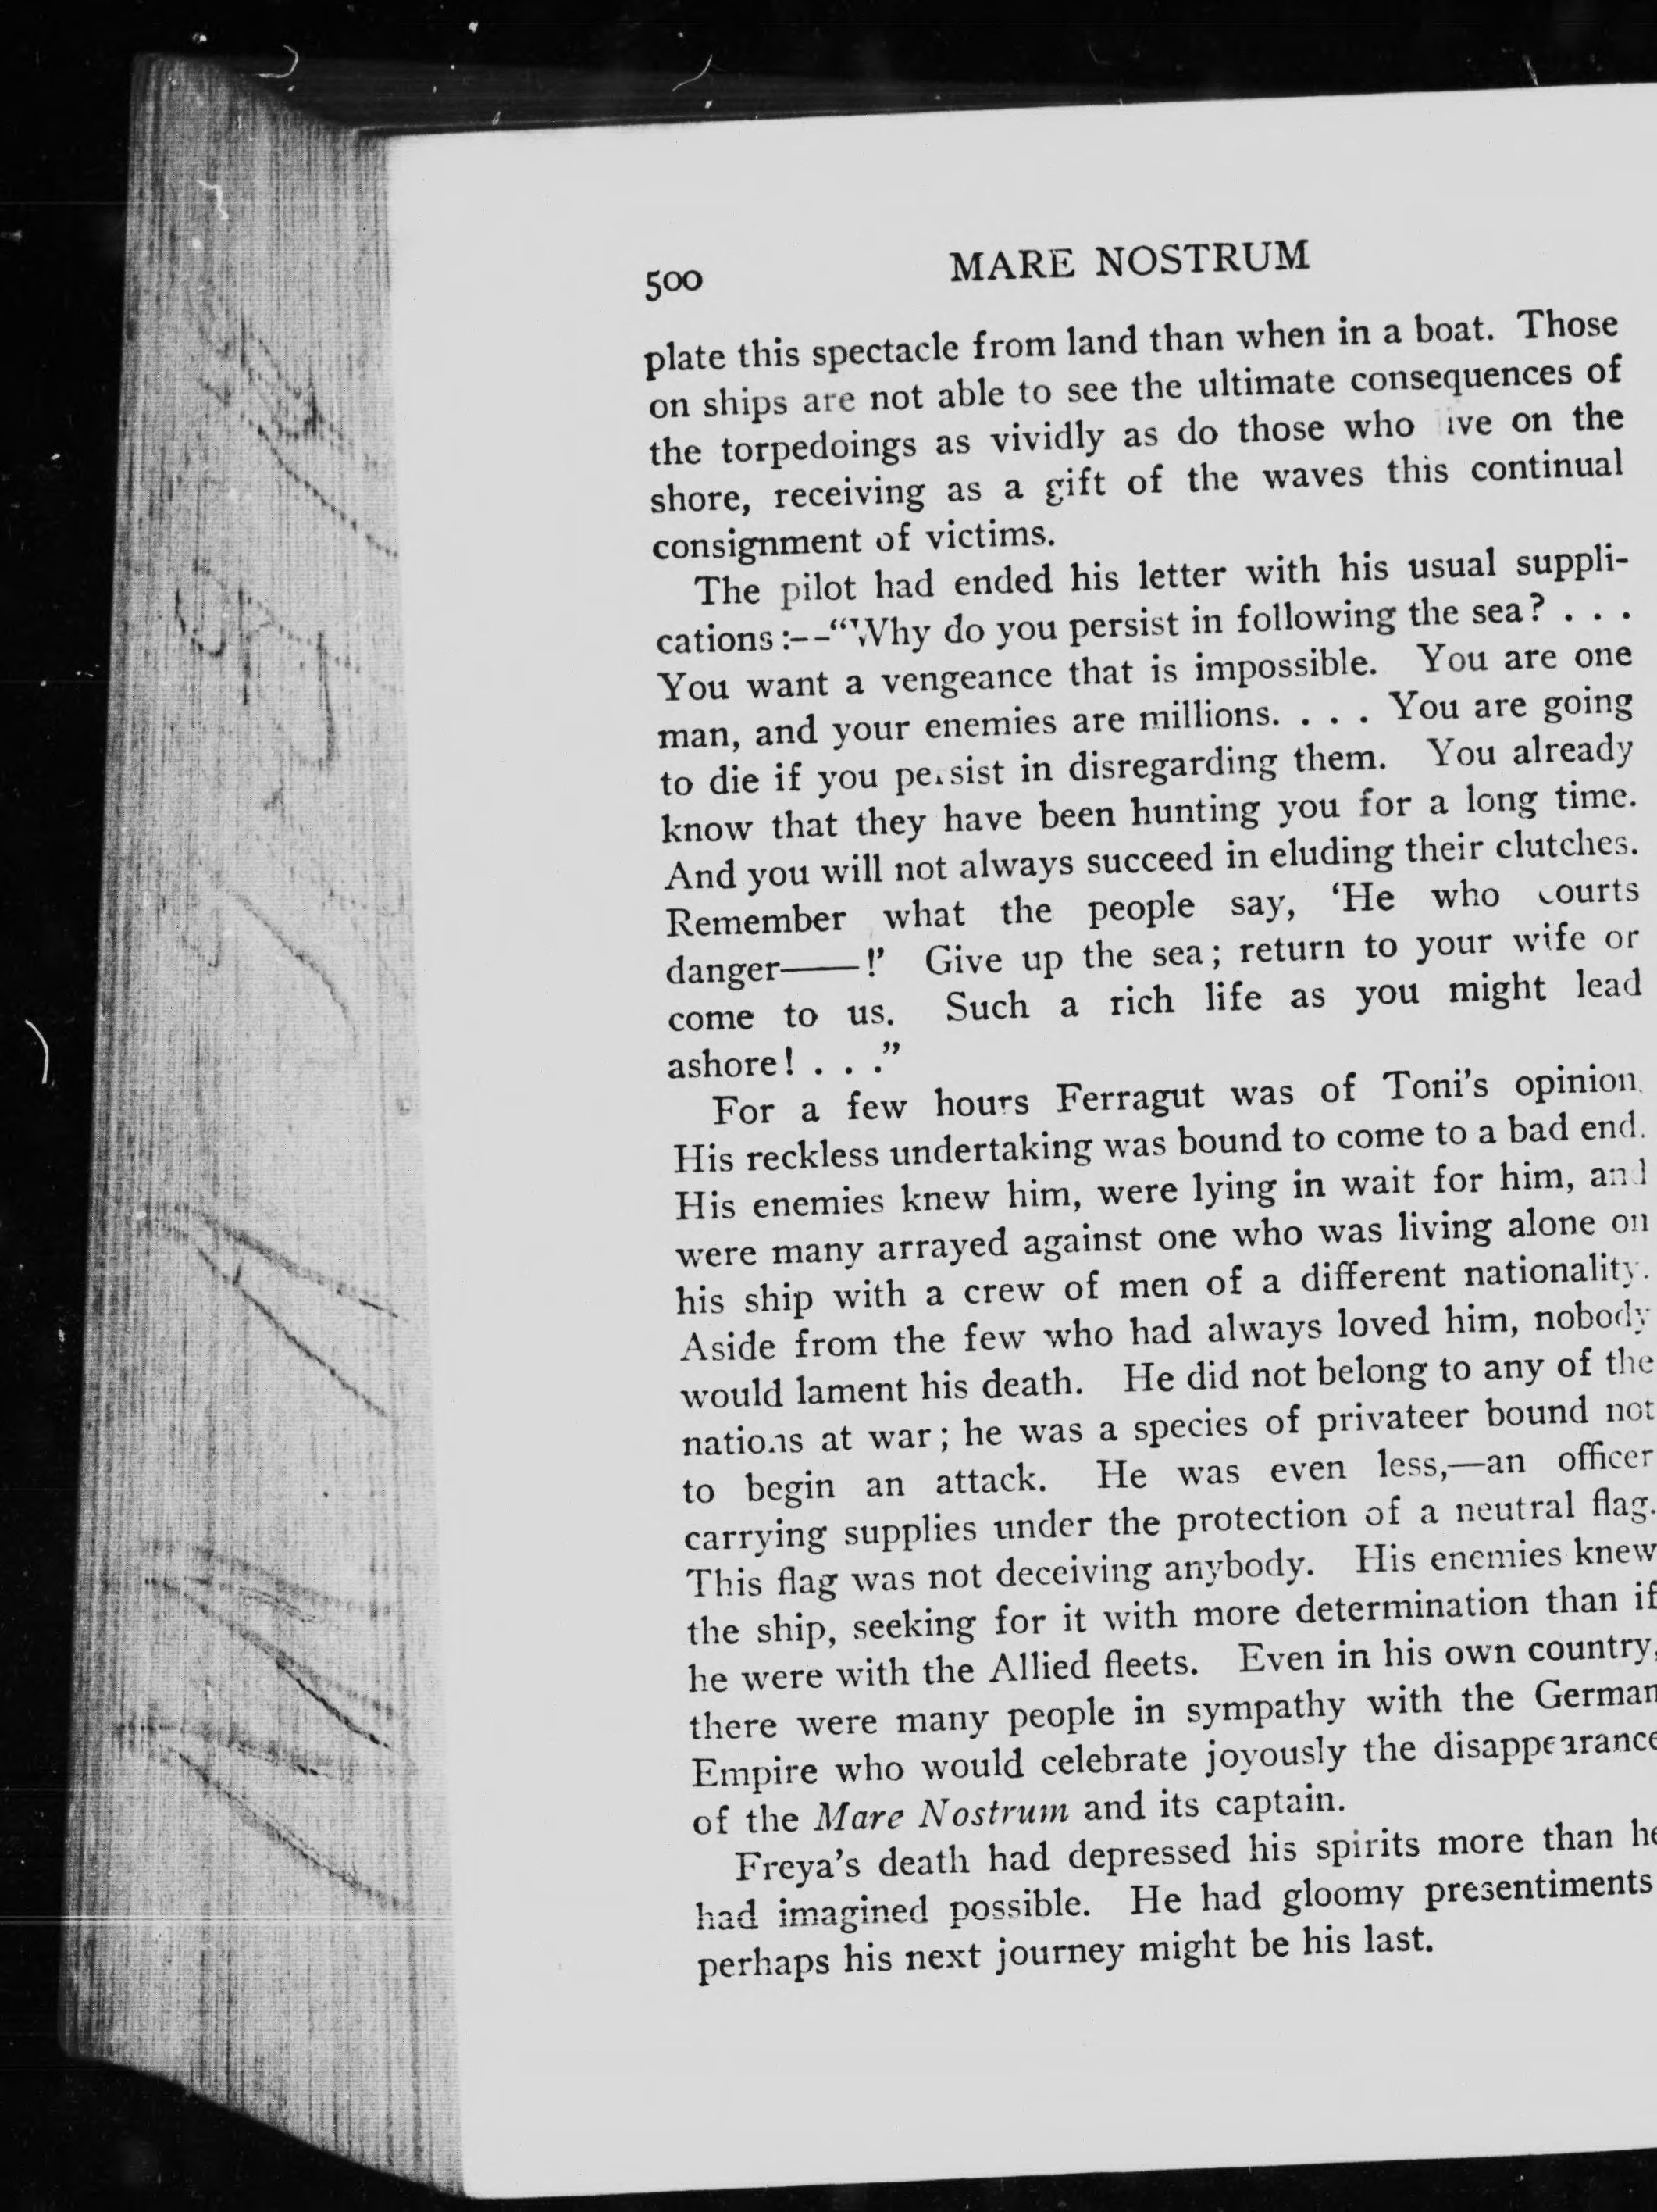 500 MARE NOSTRUM
plate this spectacle from land than when in a boat. Those
on ships are not able to see the ultimate consequences of
the torpedoings as vividly as do those who ive on the
shore, receiving as a gift of the waves this continual
consignment of victims.
The pilot had ended his letter with his usual suppli-
cations:--“Why do you persist in following the sea? . . .
You want a vengeance that is impossible. You are one
man, and your enemies are millions. . . . You are going
to die if you persist in disregarding them. You already
know that they have been hunting you for a long time.
And you will not always succeed in eluding their clutches.
Remember what the people say, ‘He who courts
danger——!’ Give up the sea; return to your wife or
come to us. Such a rich life as you might lead
ashore! . . .”
For a few hours Ferragut was of Toni’s opinion.
His reckless undertaking was bound to come to a bad end.
His enemies knew him, were lying in wait for him, and
were many arrayed against one who was living alone on
his ship with a crew of men of a different nationality.
Aside from the few who had always loved him, nobody
would lament his death. He did not belong to any of the
nations at war; he was a species of privateer bound not
to begin an attack. He was even less,—an officer
carrying supplies under the protection of a neutral flag.
This flag was not deceiving anybody. His enemies knew
the ship, seeking for it with more determination than if
he were with the Allied fleets. Even in his own country,
there were many people in sympathy with the German
Empire who would celebrate joyously the disappearance
of the Mare Nostrum and its captain.
Freya’s death had depressed his spirits more than he
had imagined possible. He had gloomy presentiments
perhaps his next journey might be his last.